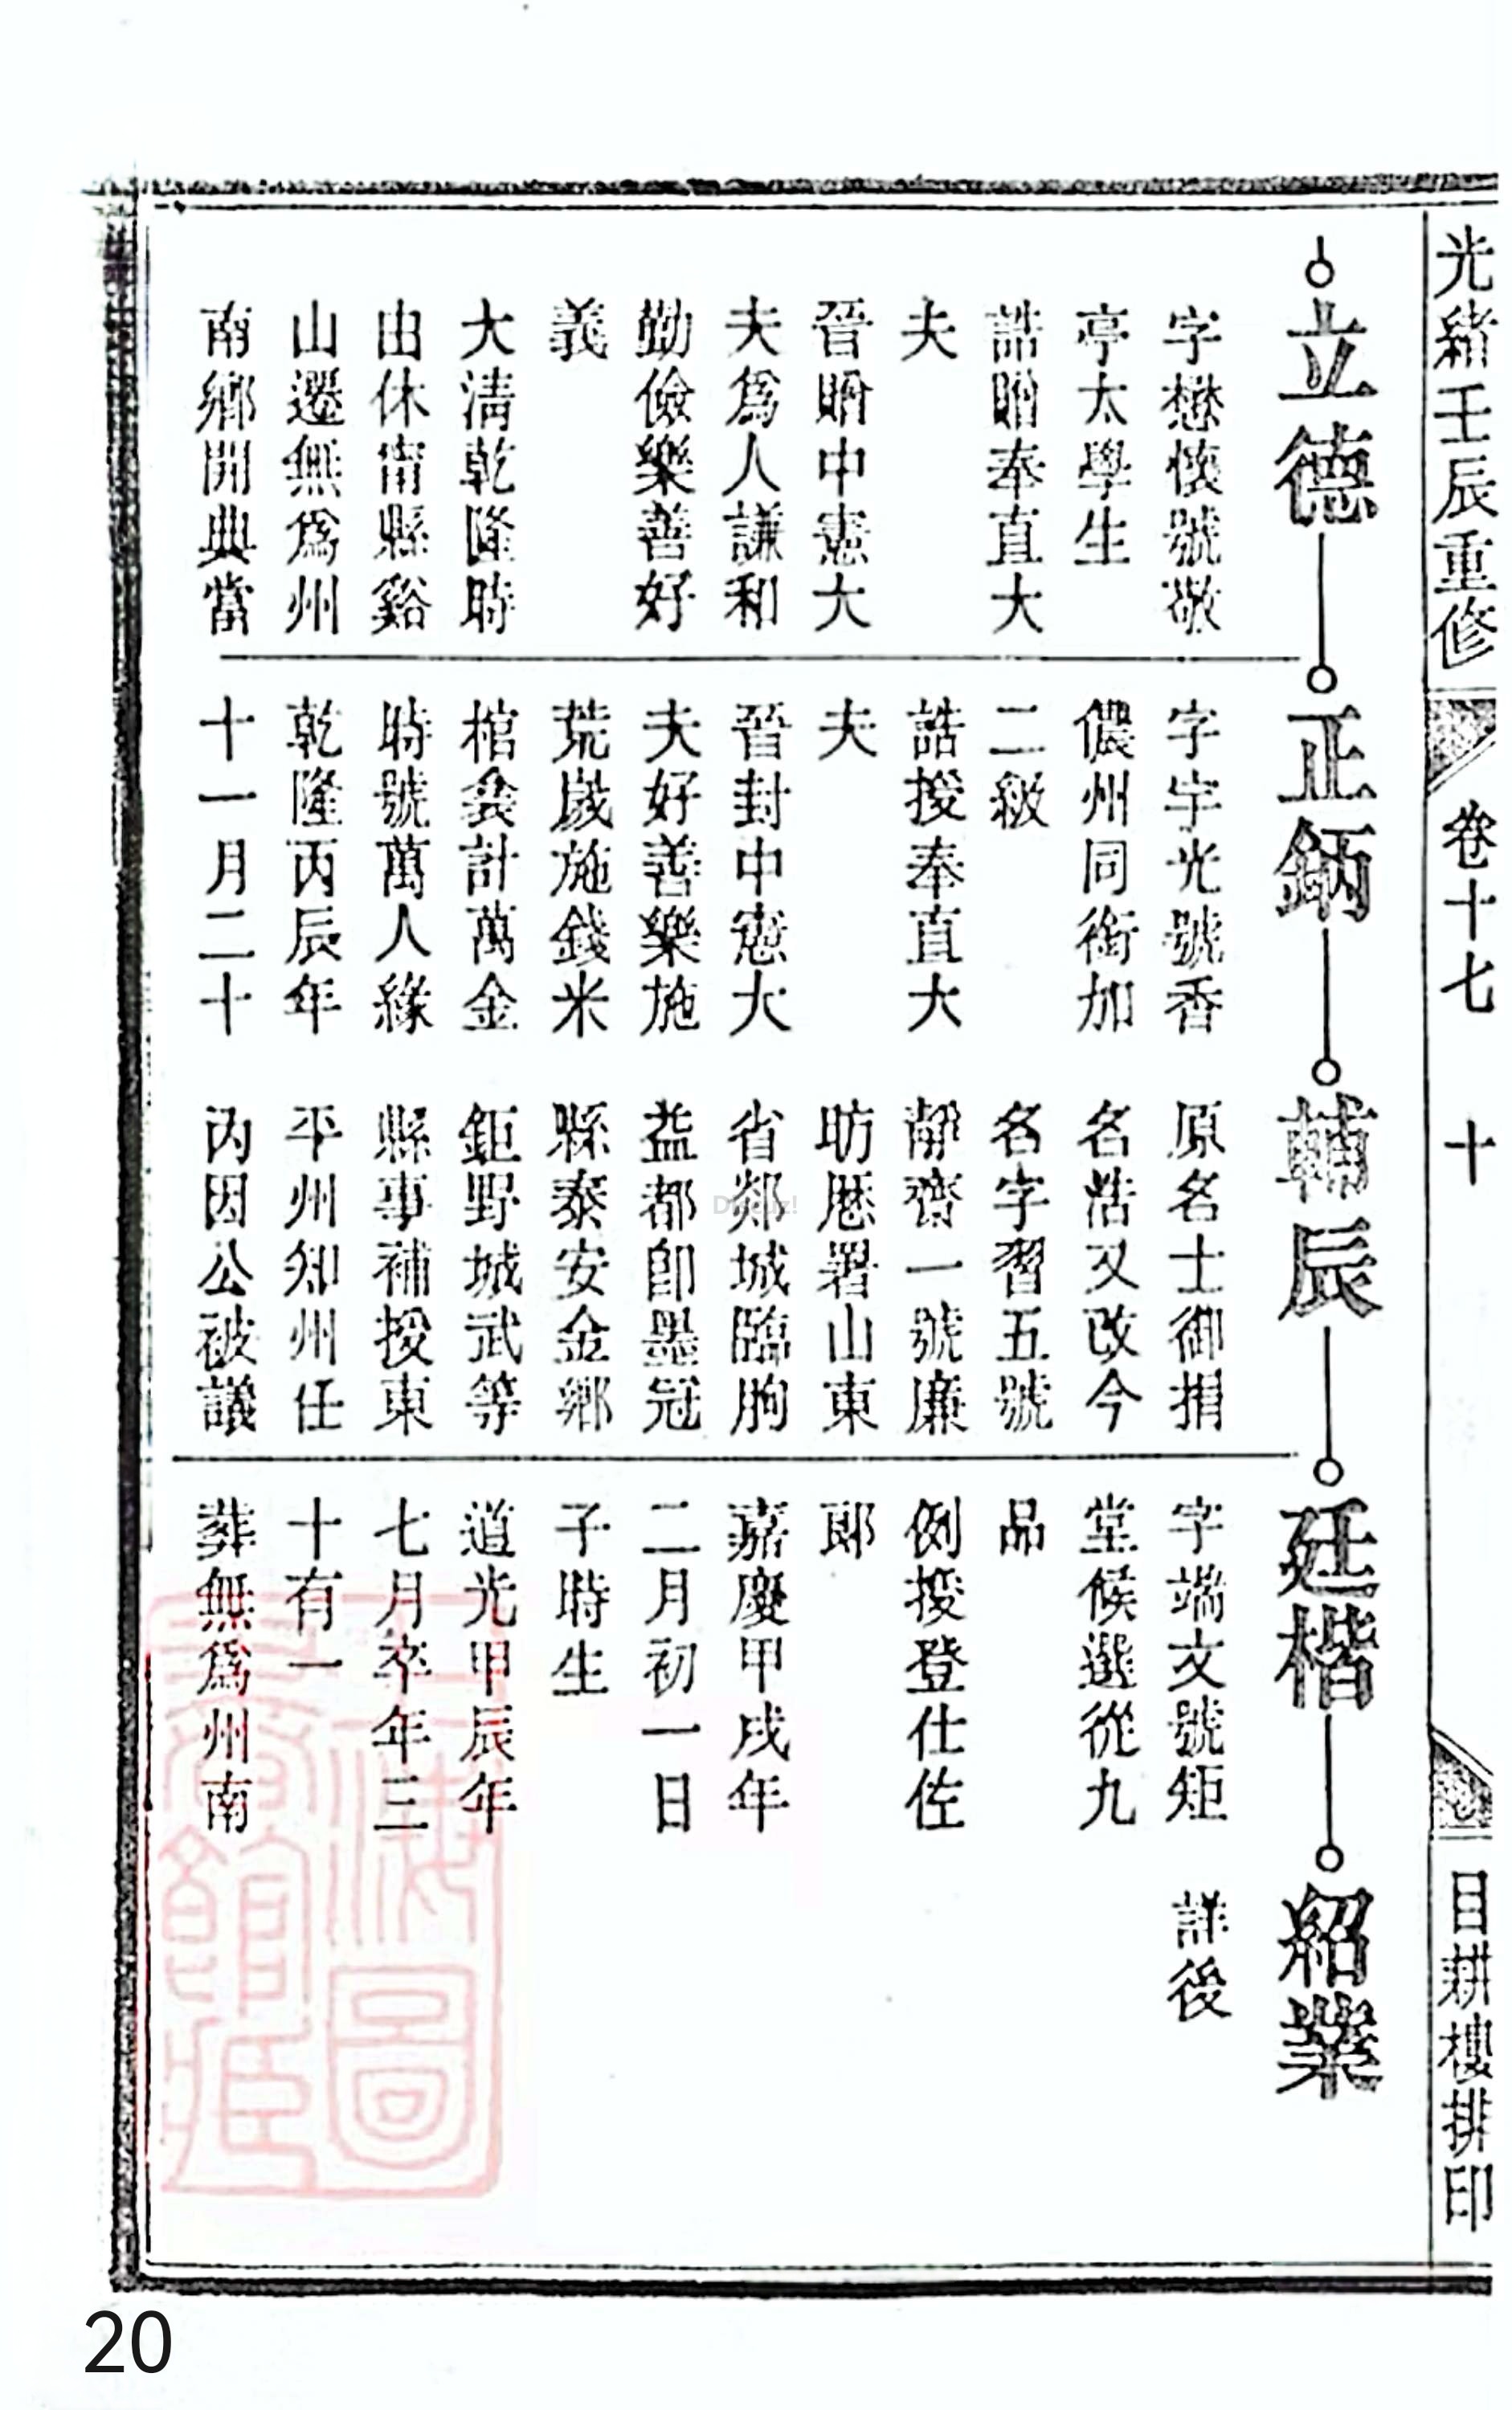 光緒壬辰重修
卷十七
十
目耕樓排印
立德
字懋懷號敬
亭太學生
誥贈奉直大
夫
晉贈中憲大
夫爲人謙和
勤儉樂善好
義
大清乾隆時
由休甯縣谿
山遷無爲州
南鄉開典當
正鈵
字宇光號香
儂州同銜加
二級
誥授奉直大
夫
晉封中憲大
夫好善樂施
荒歲施錢米
棺衾計萬金
時號萬人緣
乾隆丙辰年
十一月二十
輔辰
原名士御捐
名浩又改今
名字習五號
靜齋一號廉
昉歷署山東
省郯城臨朐
益都卽墨冠
縣泰安金鄉
鉅野城武等
縣事補授東
平州知州任
內因公被議
廷楷
字端文號矩
堂候選從九
品
例授登仕佐
郎
嘉慶甲戌年
二月初一日
子時生
道光甲辰年
七月卒年三
十有一
葬無爲州南
紹業
詳後
上海圖
書館藏
Discuz!
20